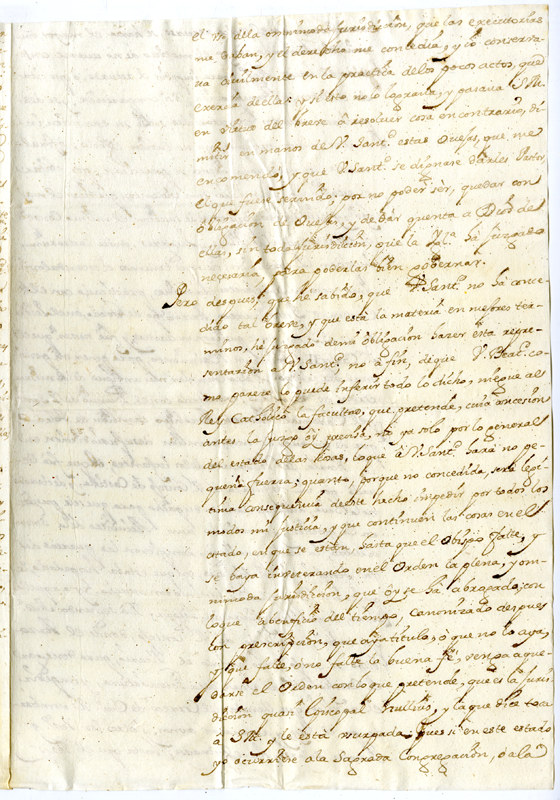 el vso dela omnimoda jurisdicion, que las executorias
me daban, y el derecho me concedia, y io conserva-
ra civilmente en la practica delos pocos actos, que
exercia de ella: y si esto no lo lograra, y pasava S. M.
en virtud del breve â resolver cosa en contrario, di
mitir en manos de V. Sant.d estas Ovejas, que me
encomendó, y que V. Sant.d se dignase darles Pastor,
el que fuese servido; por no poder sèr, quedar con
obligacion de Ovejas, y de dàr quenta a Dios de
ellas, sin toda jurisdicion, que la Igl.a ha juzgado
necesaria para poderlas bien governar.
Pero despues que hè sabido, que V. Sant.d no ha conce-
dido tal breve, y que està la materia en mejores ter-
minos, hè juzgado de mi obligacion hazer esta repre-
sentacion a V. Sant.d no a fin, de que V. Beat.d co-
mo parece lo puede inferir todo lo dicho, niegue al
Rey Catholico la facultad, que pretende, cuia concesion
antes la juzgo oy precisa, no ya solo por lo general
del estado delas cosas, lo que â V. Sant.d harà no pe-
queña fuerza; quanto, porque no concedida, serà legi-
tima consequencia de este hecho impedir por todos los
modos mi justicia, y que continuen las cosas en el
estado, en que se estàn, hasta que el Obispo falte, y
se baya inveterando en el Orden la plena, y om-
nimoda jurisdicion, que oy se ha abrogado; con
lo que a beneficio del tiempo, canonizado despues
con prescripcion, que aya titulo, ô que no lo aya,
y que falte, ô no falte la buena feè, venga a que-
darse el Orden con lo que pretende, que es la juris-
dicion quasi Episcopal nullius, y la que dice toca
â S. M. y le està vsurpada. Pues si en este estado
yo ocurriese a la Sagrada Congregacion, o a la